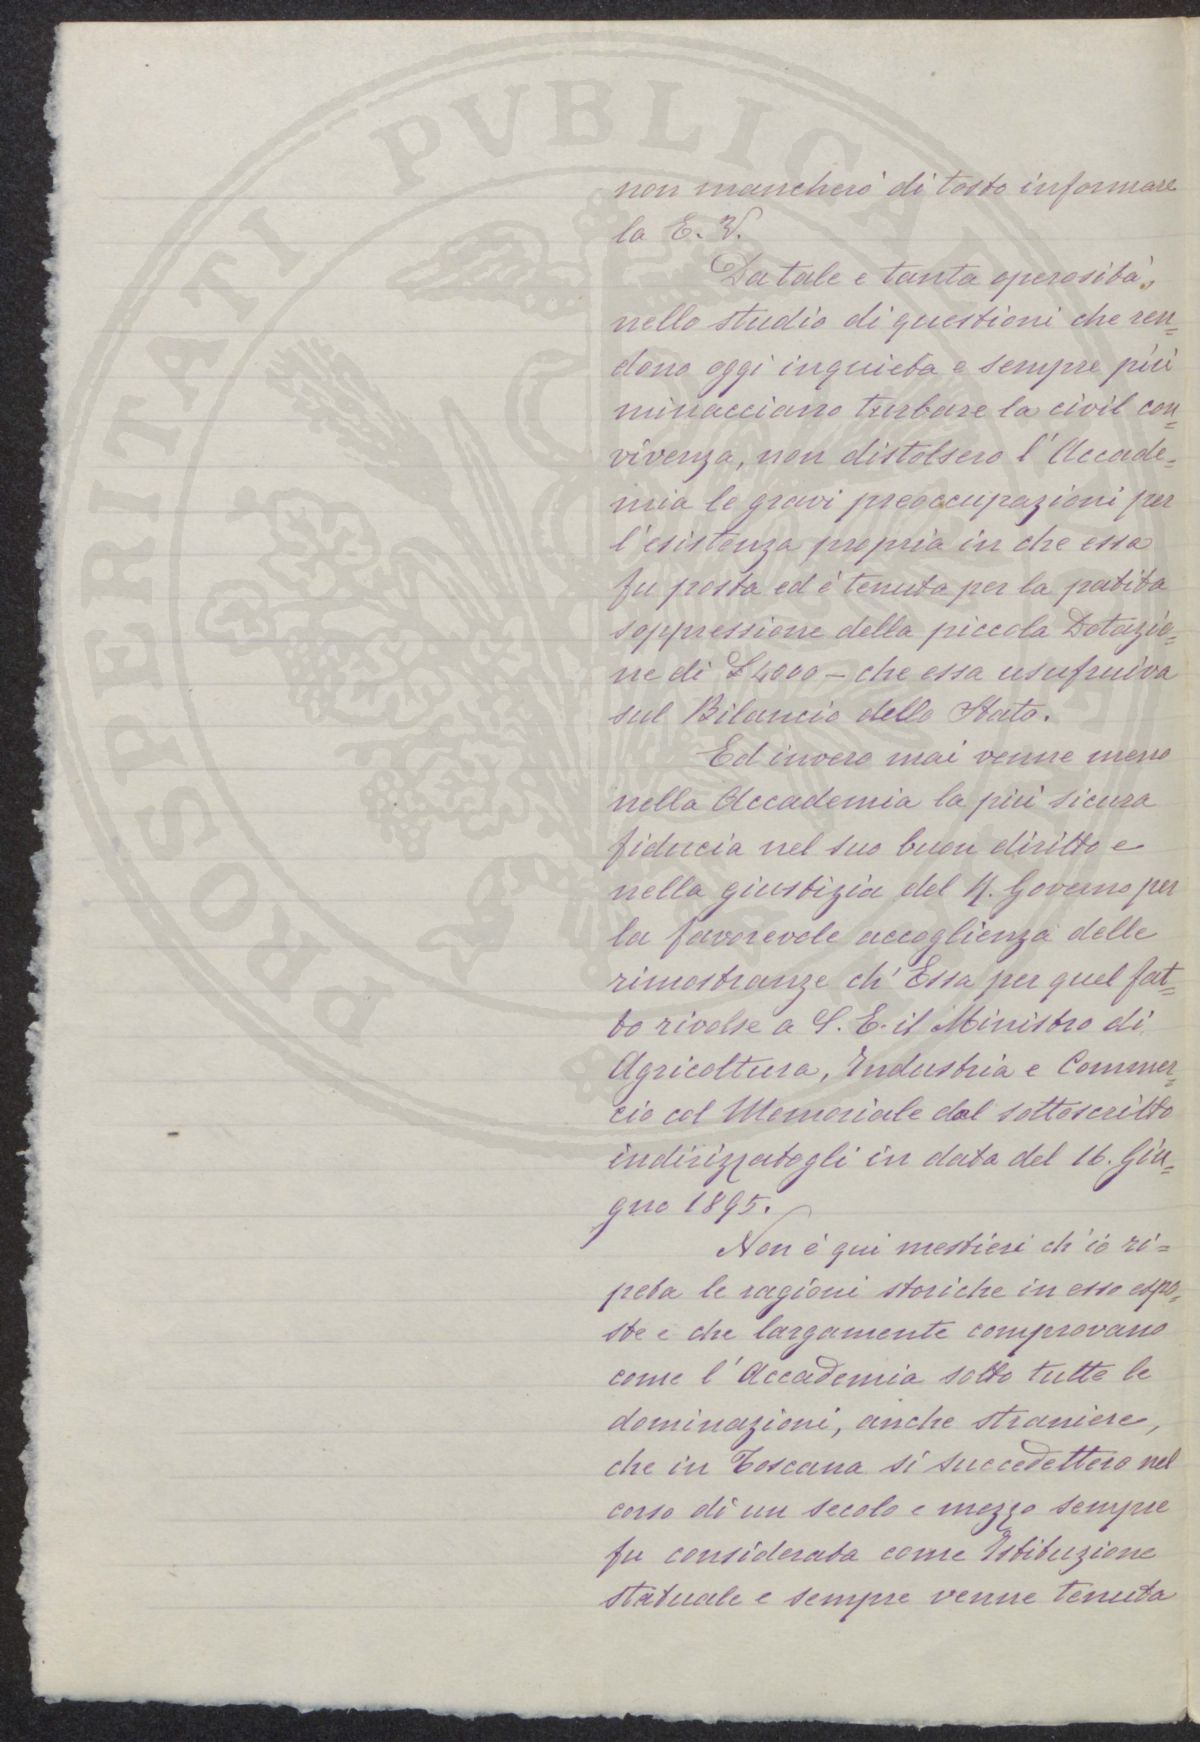 non mancherò di tosto informare
la E. V.
Da tale e tanta operosità,
nello studio di questioni che ren=
dono oggi inquieta e sempre più
minacciano turbare la civil con=
vivenza, non distolsero l'Accade=
mia le gravi preoccupazioni per
l'esistenza propria in che essa
fu posta ed è tenuta per la patita
soppressione della piccola Dotazio=
ne di £4000 — che essa usufruiva
sul Bilancio dello Stato.
Ed invero mai venne meno
nella Accademia la più sicura
fiducia nel suo buon diritto e
nella giustizia del R. Governo per
la favorevole accoglienza delle
rimostranze ch'Essa per quel fat=
to rivolse a S. E. il Ministro di
Agricoltura, Industria e Commer=
cio col Memoriale dal sottoscritto
indirizzatogli in data del 16. Giu=
gno 1895.
Non è qui mestieri ch'io ri=
peta le ragioni storiche in esso espo=
ste e che largamente comprovano
come l'Accademia sotto tutte le
dominazioni, anche straniere,
che in Toscana si succedettero nel
corso di un secolo e mezzo sempre
fu considerata come Istituzione
statuale e sempre venne tenuta
PROSPERITATI PVBLICAE